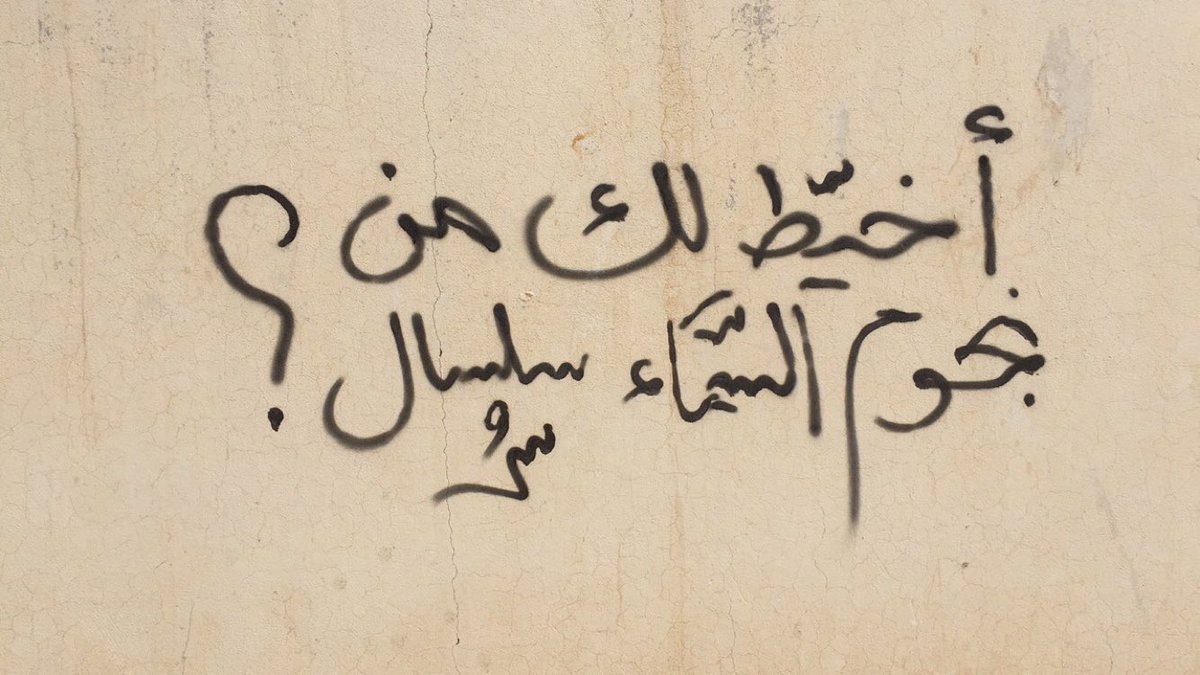 أخيّط لك من
نجوم السّماء سلسال؟